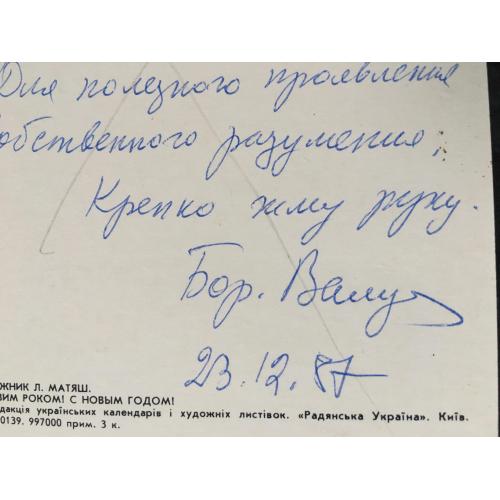 Для полезного проявления
собственного разумения,
Крепко жму руку.
Бор.
23.12.87
ЖНИК Л. МАТЯШ.
ВИМ РОКОМ! С НОВЫМ ГОДОМ!
дакція українських календарів і художніх листівок. «Радянська Україна». Київ.
0139. 997000 прим. 3 к.